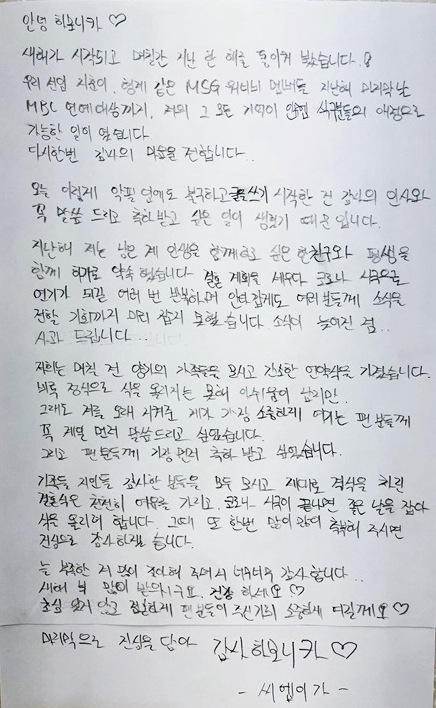 안녕 하모니카 ♡
새해가 시작되고 며칠간 지난 한 해를 돌이켜 봤습니다.
우리 신입 지훈이, 형제 같은 MSG 워너비 멤버들 지난해 마지막 날
MBC 연예대상까지, 저의 그 모든 기억이 식구분들의 애정으로
가능한 일이 었습니다
다시한번 감사의 마음을 전합니다..
오늘 이렇게 악필 임에도 불구하고 글쓰기 시작한 건 감사의 인사와
꼭 말씀 드리고 축하 받고 싶은 일이 생겼기 때문 입니다.
지난해 저는 남은 제 인생을 함께하고 싶은 한 친구와 평생을
함께 하기로 약속 했습니다 결혼 계획을 세우다 코로나 시국으로
연기가 되길 여러 번 반복하며 안타깝게도 여러분들께 소식을
전할 기회까지 미리 잡지 못했습니다 소식이 늦어진 점..
사과 드립니다...
저희는 며칠 전 양가의 가족들을 모시고 간소한 언약식을 가졌습니다.
비록 정식으로 식을 올리지는 못해 아쉬움이 남지만
그래도 저를 오래 지켜준 제가 가장 소중하게 여기는 팬 분들께
꼭 제일 먼저 말씀드리고 싶었습니다.
그리고 팬 분들께 가장 먼저 축하 받고 싶었습니다.
가족들 지인들 감사한 분들을 모두 모시고 제대로 격식을 차린
결혼식은 천천히 여유를 가지고 코로나 시국이 끝나면 좋은 날을 잡아
식을 올리려 합니다. 그때 또 한번 많이 많이 축복해 주시면
진심으로 감사하겠습니다.
늘 부족한 저 많이 좋아해 주셔서 너무너무 감사합니다..
새해 복 많이 받으시구요. 건강 하세요 ♡
초심 잃지 않고 팬 분들이 주신 소중하게 여길게요 ♡
마지막으로 진심을 담아 감사 하모니카 ♡
- 씨엠이가 -